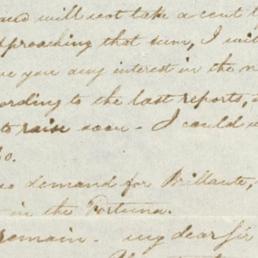 and will not take a cent t
approaching that sum, I wil
ve you any interest in the n
cording to the last reports,
to raise soon - I could
o.
demand for Brillante,
in the Fortuna.
remain - my dear Sir